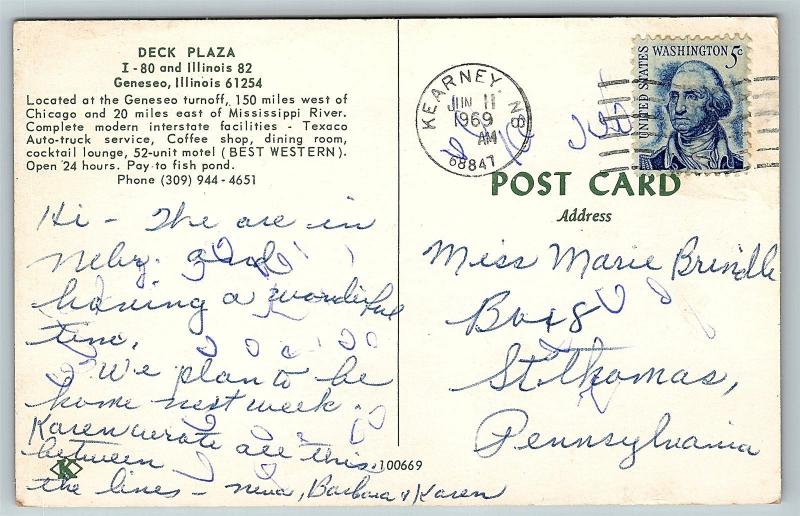 DECK PLAZA
I-80 and Illinois 82
Geneseo, Illinois 61254
Located at the Geneseo turnoff, 150 miles west of
Chicago and 20 miles east of Mississippi River.
Complete modern interstate facilities - Texaco
Auto-truck service, Coffee shop, dining room,
cocktail lounge, 52-unit motel (BEST WESTERN).
Open 24 hours. Pay to fish pond.
Phone (309) 944-4651
Hi - The are in
Nebr. and
having a wonderful
time.
We plan to be
home next week.
Karen wrote all this
between
the lines - Neva, Barbara & Karen
K
100669
KEARNEY NB
JUN 11
1969
AM
68847
UNITED STATES WASHINGTON 5¢
POST CARD
Address
Miss Marie Brindle
Box 8
St. Thomas,
Pennsylvania